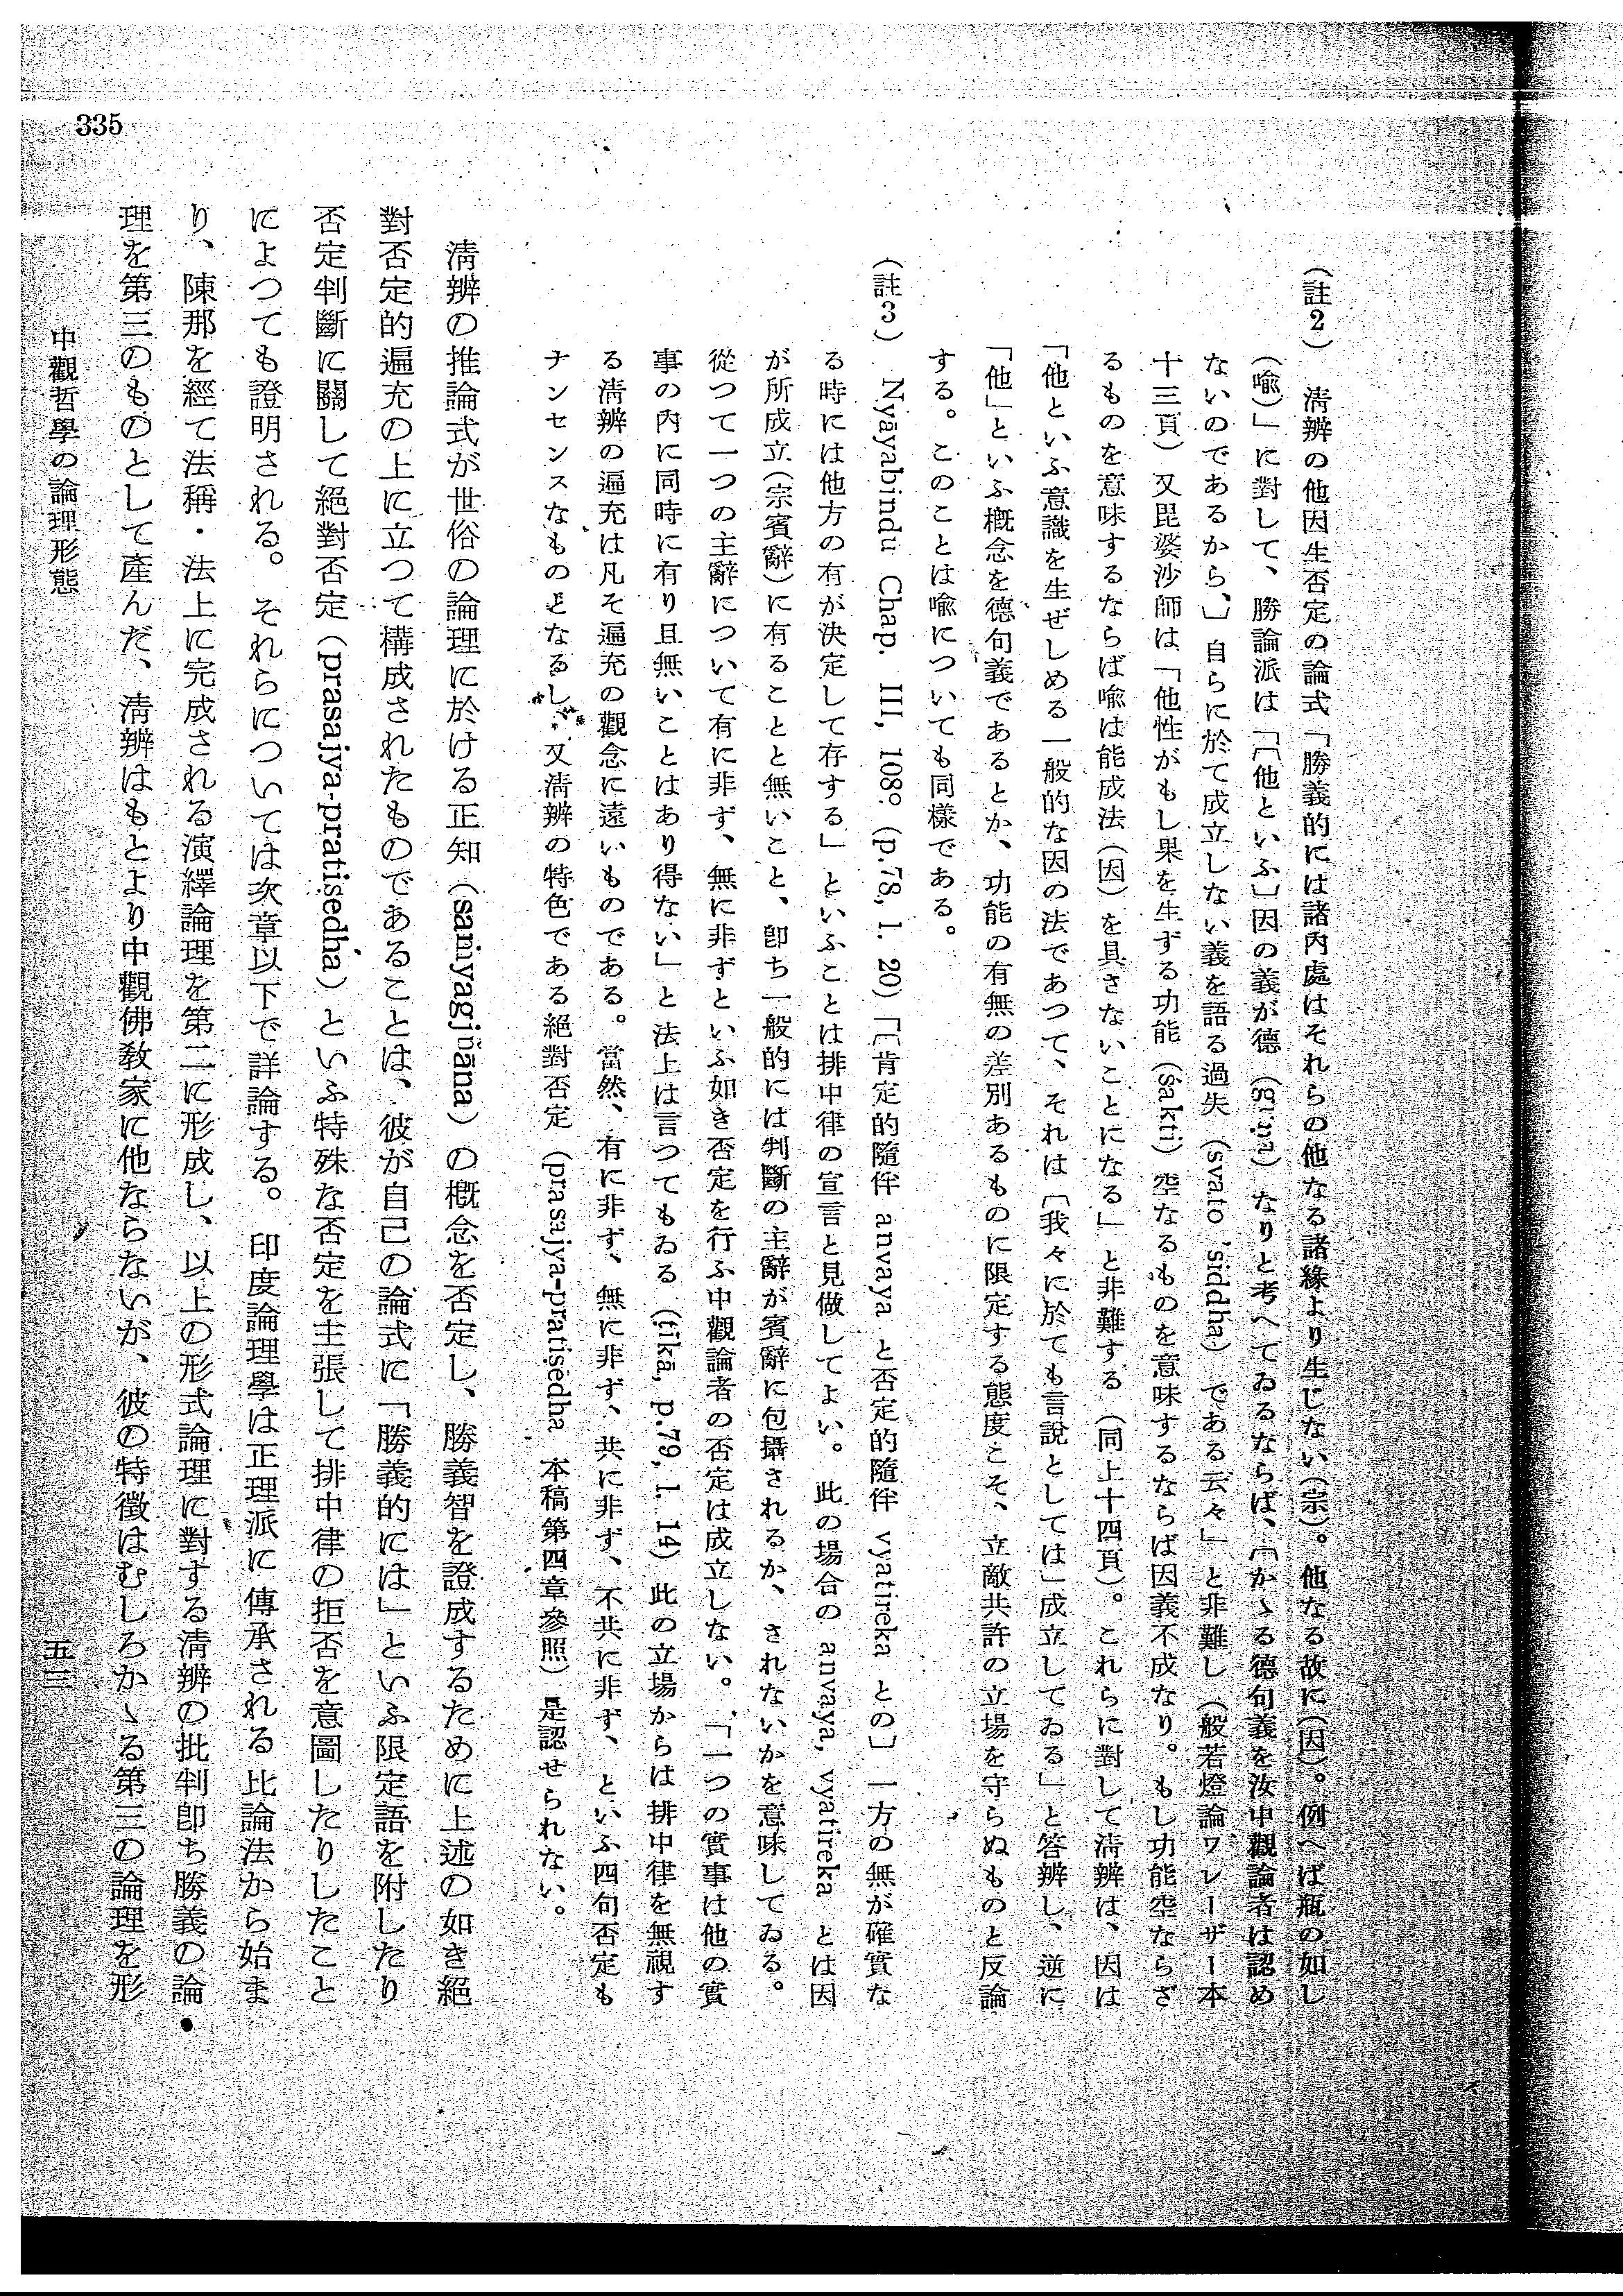 335
（註2）　淸辨の他因生否定の論式「勝義的には諸内處はそれらの他なる諸緣より生じない(宗)。他なる故に(因)。例へば瓶の如し
（喩）」に對して、勝論派は「〔他といふ〕因の義が德 (guṇa) なりと考へてゐるならば、〔かゝる德句義を汝中觀論者は認め
ないのであるから、〕自らに於て成立しない義を語る過失 (svato 'siddha) である云々」と非難し（般若燈論ワレーザー本
十三頁）又毘婆沙師は「他性がもし果を生ずる功能 (śakti) 空なるものを意味するならば因義不成なり。もし功能空ならざ
るものを意味するならば喩は能成法（因）を具さないことになる」と非難する（同上十四頁）。これらに對して淸辨は、因は
「他といふ意識を生ぜしめる一般的な因の法であつて、それは〔我々に於ても言說としては〕成立してゐる」と答辨し、逆に
「他」といふ概念を德句義であるとか、功能の有無の差別あるものに限定する態度こそ、立敵共許の立場を守らぬものと反論
する。このことは喩についても同樣である。
（註3）　Nyāyabindu Chap. III, 108° (p.78, l. 20)「〔肯定的隨伴 anvaya と否定的隨伴 vyatireka との〕一方の無が確實な
る時には他方の有が決定して存する」といふことは排中律の宣言と見做してよい。此の場合の anvaya, vyatireka とは因
が所成立（宗賓辭）に有ることと無いこと、卽ち一般的には判斷の主辭が賓辭に包攝されるか、されないかを意味してゐる。
從つて一つの主辭について有に非ず、無に非ずといふ如き否定を行ふ中觀論者の否定は成立しない。「一つの實事は他の實
事の内に同時に有り且無いことはあり得ない」と法上は言つてもゐる (ṭīkā, p.79, l. 14) 此の立場からは排中律を無視す
る淸辨の遍充は凡そ遍充の觀念に遠いものである。當然、有に非ず、無に非ず、共に非ず、不共に非ず、といふ四句否定も
ナンセンスなものとなるし、又淸辨の特色である絕對否定 (prasajya-pratiṣedha 本稿第四章參照) 是認せられない。
淸辨の推論式が世俗の論理に於ける正知 (saṁyagjñāna) の概念を否定し、勝義智を證成するために上述の如き絕
對否定的遍充の上に立つて構成されたものであることは、彼が自己の論式に「勝義的には」といふ限定語を附したり
否定判斷に關して絕對否定 (prasajya-pratiṣedha) といふ特殊な否定を主張して排中律の拒否を意圖したりしたこと
によつても證明される。それらについては次章以下で詳論する。印度論理學は正理派に傳承される比論法から始ま
り、陳那を經て法稱・法上に完成される演繹論理を第二に形成し、以上の形式論理に對する淸辨の批判卽ち勝義の論
理を第三のものとして產んだ、淸辨はもとより中觀佛敎家に他ならないが、彼の特徵はむしろかゝる第三の論理を形
中觀哲學の論理形態
五三